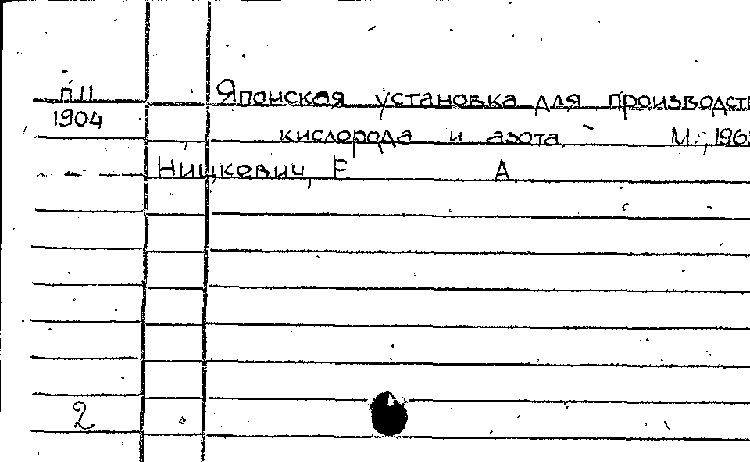 п.11 Японская установка для производст
1904 кислорода и азота. М., 196
Ницкевич, Е А
2